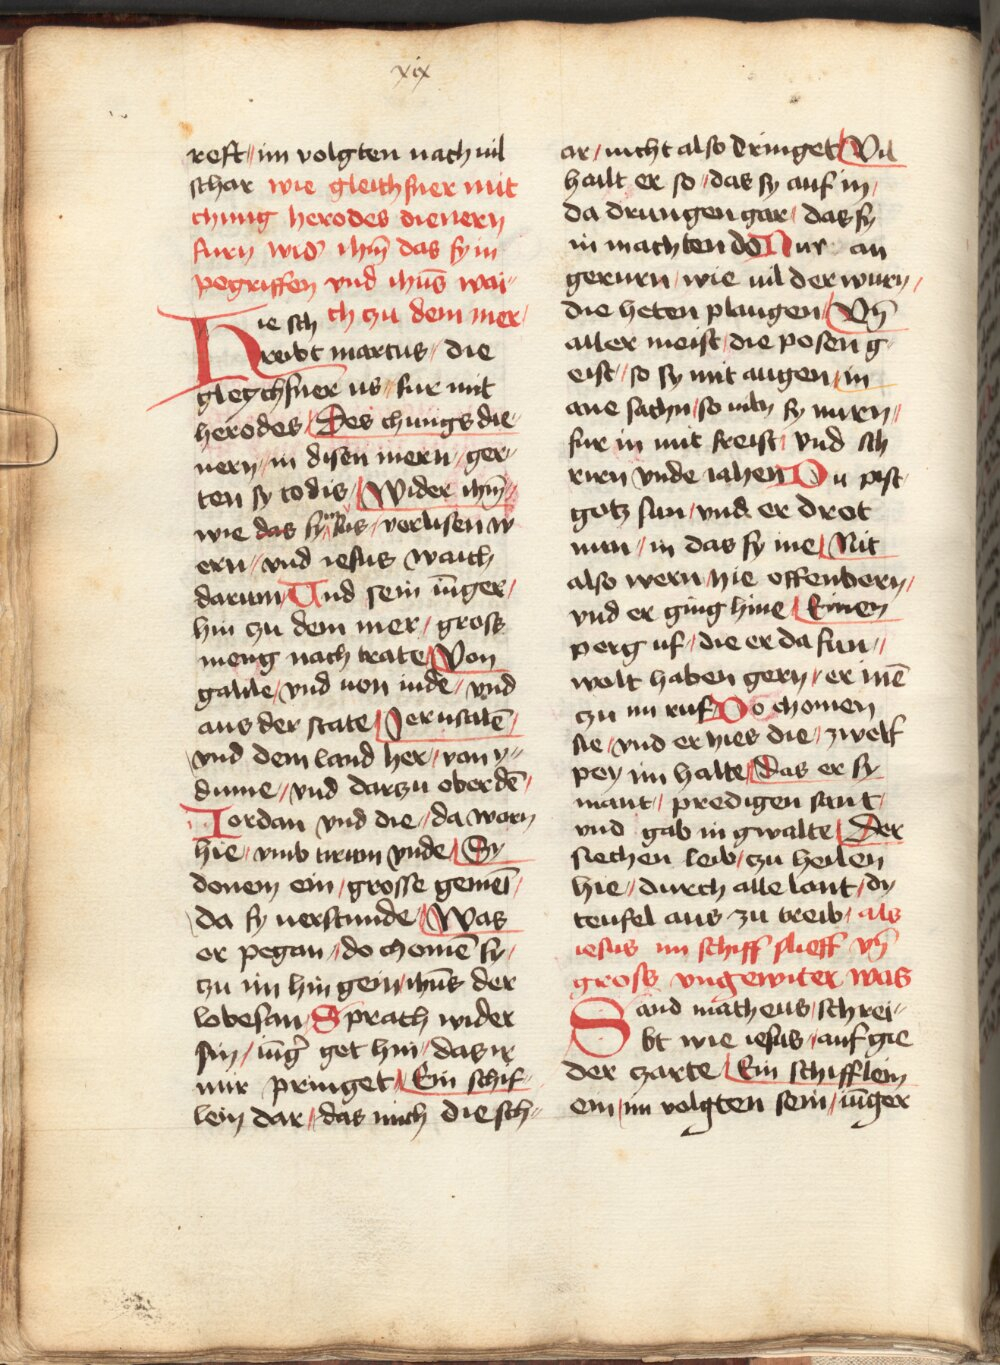 xix
reft // im volgten nach vil
schar wie gleichsner mit
chung herodes dienern
furn wid' ihm̄ das sy in
pegriffen vnd ihūs wai=
ch zu dem mer /
Hie sch
reibt marcus / die
gleychsner us / fur mit
herodes / Des chungs die=
nern / in disen mern / ger=
ten sy todis / Wider ihm̄ //
wie das sy im lis / verlisen w
ern // vnd iesus waich
darum / Und sein iūger /
hin zu dem mer / gross
meng nach trate / Von
galile / vnd von iude / vnd
aus der state / Jerusalē /
vnd dem land her // von y=
dume // vnd darzu ober dē /
Jordan vnd die / da warn
hie / vmb tirum vnde / Sy
donem ein / grosse gemeī /
da sy verstunde / Was
er pegan / do chomē sy /
zu im hin gein / ihūs der
lobesan / Sprach wider
sin / iūg' get hin / das ir
mir pringet / Ein schif=
lein dar / das mich die sch=
ar / nicht also dringet / Vil
hailt er so / das sy auf in /
da drungen gar / das sy
in machten do Nur an
gerurn / wie vil der wurn /
die heten plaugen / Vn̄
aller meist / die posen g=
eist / so sy mit augen / in
ane sachn / so viln sy nurn //
fur in mit freist / vnd sch
rirn vnde iahen Du pist
gotz sun / vnd er drot
nun / in das sy ine / Nit
also wern / hie offenbern /
vnd er ging hine / Einen
perg uf / die er da fun //
wolt haben gern / er inē
zu im ruf / Do chomen
sie / vnd er hies die / zwelf
pey im halte / Das er sy
mant / predigen sant /
vnd gab in gwalte / Der
siechen leib / zu heilen
hie // durch alle lant / dy
teufel aus zu treib / als
iesus im schiff slieff vn̄
gross vngewiter was
Sand matheus / schrei=
bt wie iesus / auf gie
der zarte / Ein schifflein
ein / im volgten sein / iūger